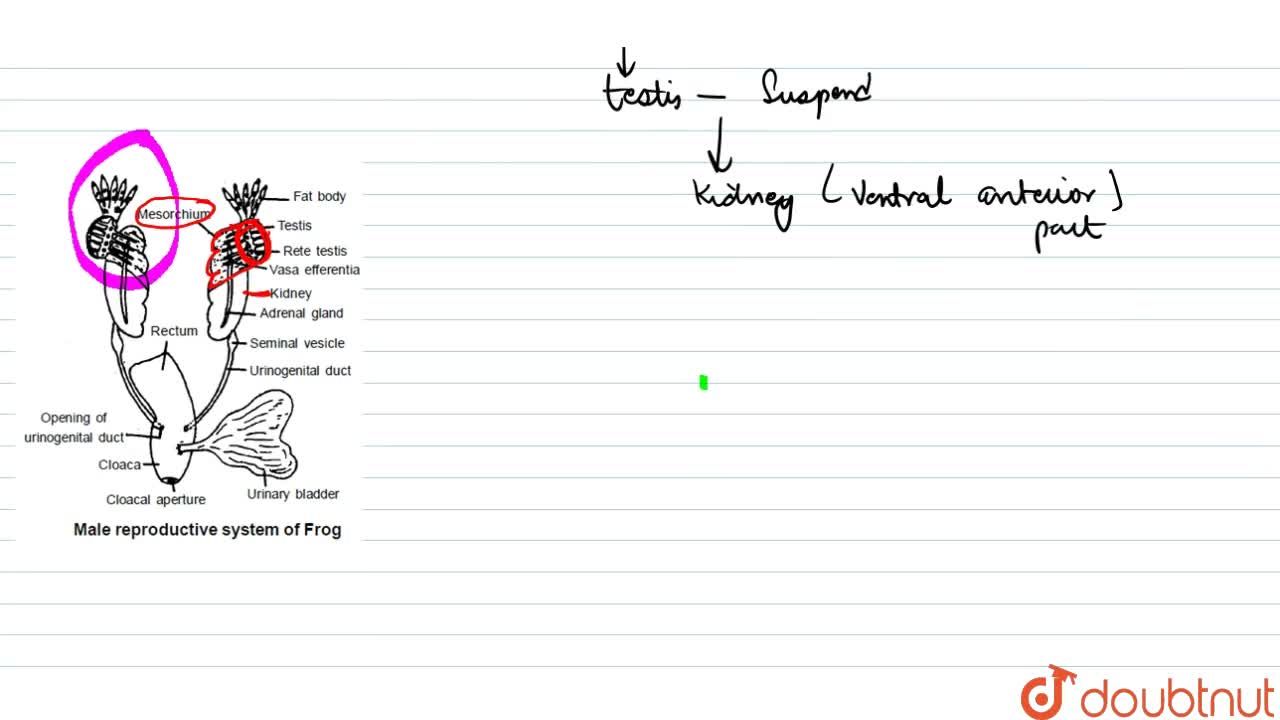 testis — Suspend
Kidney (Ventral anterior)
part
Fat body
Mesorchium
Testis
Rete testis
Vasa efferentia
Kidney
Adrenal gland
Rectum
Seminal vesicle
Urinogenital duct
Opening of
urinogenital duct
Cloaca
Cloacal aperture
Urinary bladder
Male reproductive system of Frog
doubtnut